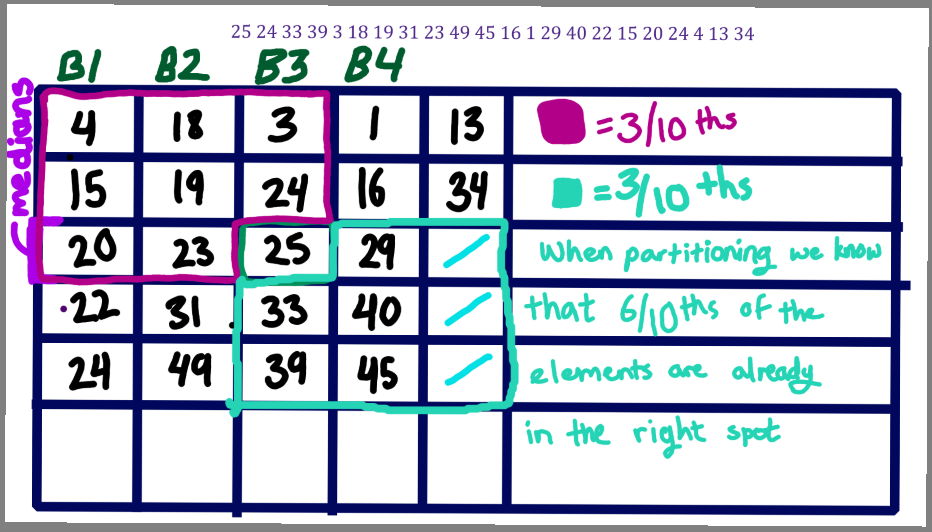 25 24 33 39 3 18 19 31 23 49 45 16 1 29 40 22 15 20 24 4 13 34
B1 B2 B3 B4
medians
4 18 3 1 13 = 3/10 ths
15 19 24 16 34 = 3/10 ths
20 23 25 29 When partitioning we know
22 31 33 40 that 6/10 ths of the
24 49 39 45 elements are already
in the right spot